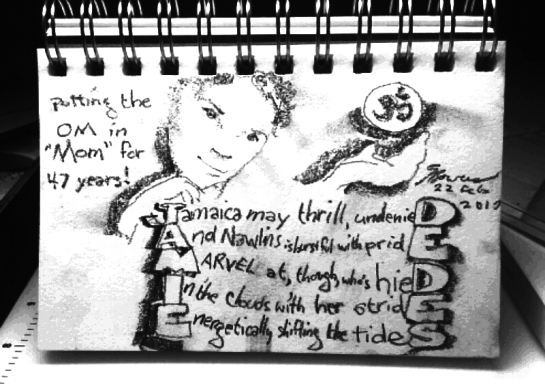 putting the
OM in
"Mom" for
47 years!
ॐ
22 Feb
Jamaica may thrill, undenieD
And Nawlins is burstful with pridE
MARVEL at, though, who's hieD
In the clouds with her stridE
Energetically shifting the tideS